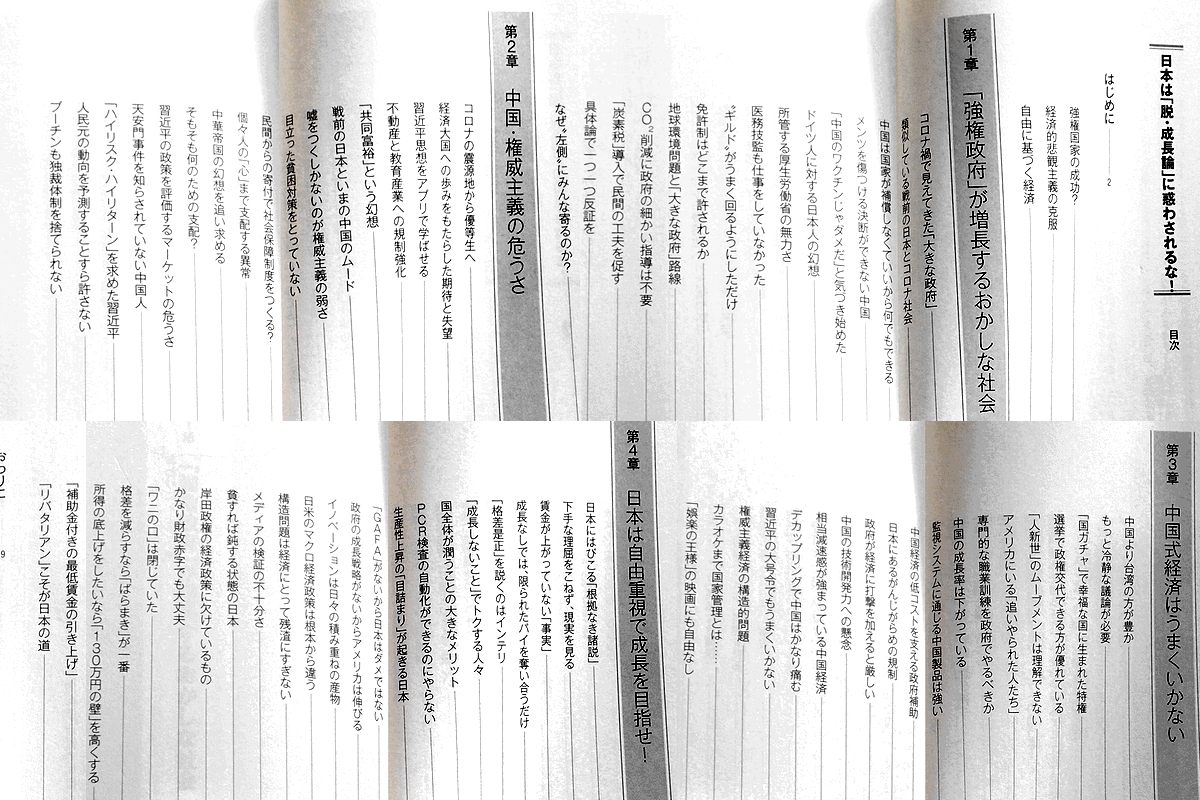 日本は「脱・成長論」に惑わされるな！
目次
はじめに 2
強権国家の成功？
経済的悲観主義の克服
自由に基づく経済
第1章 「強権政府」が増長するおかしな社会
コロナ禍で見えてきた「大きな政府」
類似している戦前の日本とコロナ社会
中国は国家が補償しなくていいから何でもできる
メンツを傷つける決断ができない中国
「中国のワクチンじゃダメだ」と気づき始めた
ドイツ人に対する日本人の幻想
所管する厚生労働省の無力さ
医務技監も仕事をしていなかった
“ギルド”がうまく回るようにしただけ
免許制はどこまで許されるか
地球環境問題と「大きな政府」路線
CO2削減に政府の細かい指導は不要
「炭素税」導入で民間の工夫を促す
具体論で一つ一つ反証を
なぜ“左側”にみんな寄るのか？
第2章 中国・権威主義の危うさ
コロナの震源地から優等生へ
経済大国への歩みをもたらした期待と失望
習近平思想をアプリで学ばせる
不動産と教育産業への規制強化
「共同富裕」という幻想
戦前の日本といまの中国のムード
嘘をつくしかないのが権威主義の弱さ
目立った貧困対策をとっていない
民間からの寄付で社会保障制度をつくる？
個々人の「心」まで支配する異常
中華帝国の幻想を追い求める
そもそも何のための支配？
習近平の政策を評価するマーケットの危うさ
天安門事件を知らされていない中国人
「ハイリスク・ハイリターン」を求めた習近平
人民元の動向を予測することすら許さない
プーチンも独裁体制を捨てられない
第3章 中国式経済はうまくいかない
中国より台湾の方が豊か
もっと冷静な議論が必要
「国ガチャ」で幸福な国に生まれた特権
選挙で政権交代できる方が優れている
「人新世」のムーブメントは理解できない
アメリカにいる「追いやられた人たち」
専門的な職業訓練を政府でやるべきか
中国の成長率は下がっている
監視システムに通じる中国製品は強い
中国経済の低コストを支える政府補助
日本にもあるがんじがらめの規制
政府が経済に打撃を加えると厳しい
中国の技術開発力への懸念
相当減速感が強まっている中国経済
デカップリングで中国はかなり痛む
習近平の大号令でもうまくいかない
権威主義経済の構造的問題
カラオケまで国家管理とは……
「娯楽の王様」の映画にも自由なし
第4章 日本は自由重視で成長を目指せ！
日本にはびこる「根拠なき諸説」
下手な理屈をこねず、現実を見る
賃金が上がっていない「事実」
成長なしでは、限られたパイを奪い合うだけ
「格差是正」を説くのはインテリ
「成長しないこと」でトクする人々
国全体が潤うことの大きなメリット
PCR検査の自動化ができるのにやらない
生産性上昇の「目詰まり」が起きる日本
「GAFA」がないから日本はダメではない
政府の成長戦略がないからアメリカは伸びる
イノベーションは日々の積み重ねの産物
日米のマクロ経済政策は根本から違う
構造問題は経済にとって残渣にすぎない
メディアの検証の不十分さ
貧すれば鈍する状態の日本
岸田政権の経済政策に欠けているもの
かなり財政赤字でも大丈夫
「ワニの口」は閉じていた
格差を減らすなら「ばらまき」が一番
所得の底上げをしたいなら「130万円の壁」を高くする
「補助金付きの最低賃金の引き上げ」
「リバタリアン」こそが日本の道
おわりに 9